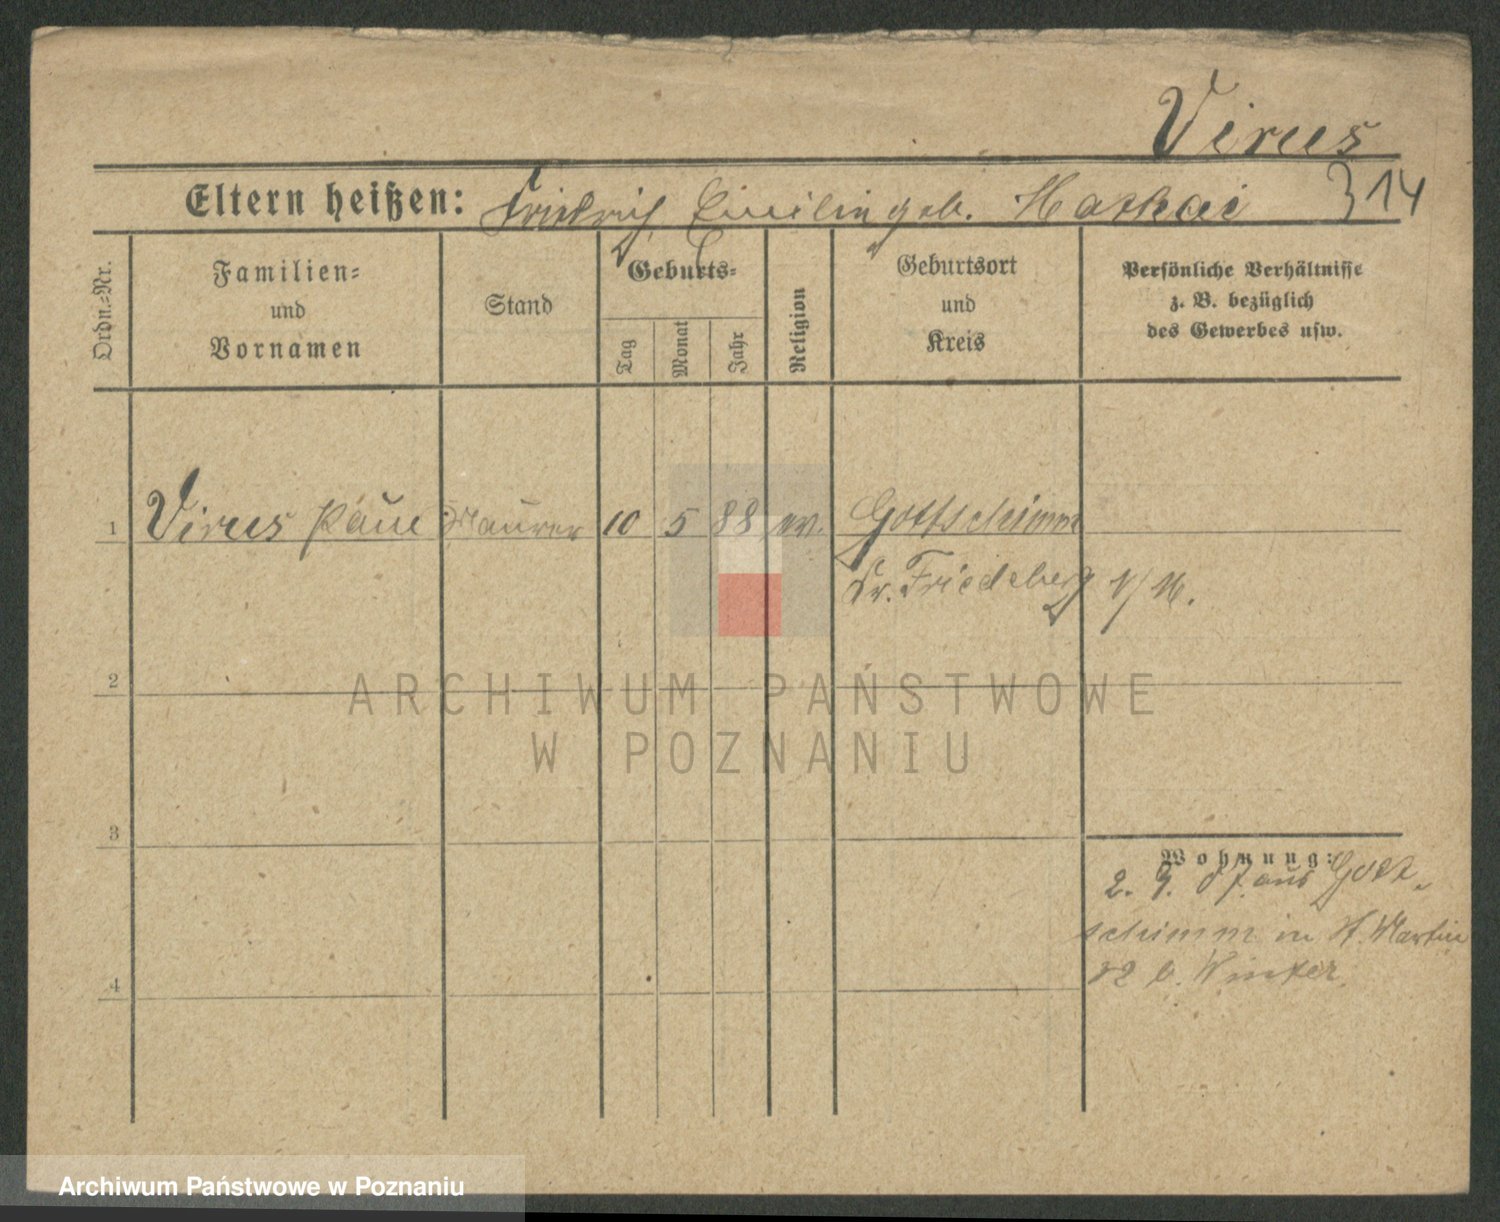 Virus
Eltern heißen: Friedrich, Emilie geb. Mathai 314
Ordn.-Nr.
Familien-
und
Vornamen
Stand
Geburts-
Tag
Monat
Jahr
Religion
Geburtsort
und
Kreis
Persönliche Verhältnisse
z. B. bezüglich
des Gewerbes usw.
1 Virus Paul Maurer 10 5 88 ev. Gottschimm
Kr. Friedeberg N/M.
2
ARCHIWUM PAŃSTWOWE
W POZNANIU
3
Wohnung:
2. 9. 07 aus Gott-
schimm in St. Martin
b. Winter
4
Archiwum Państwowe w Poznaniu